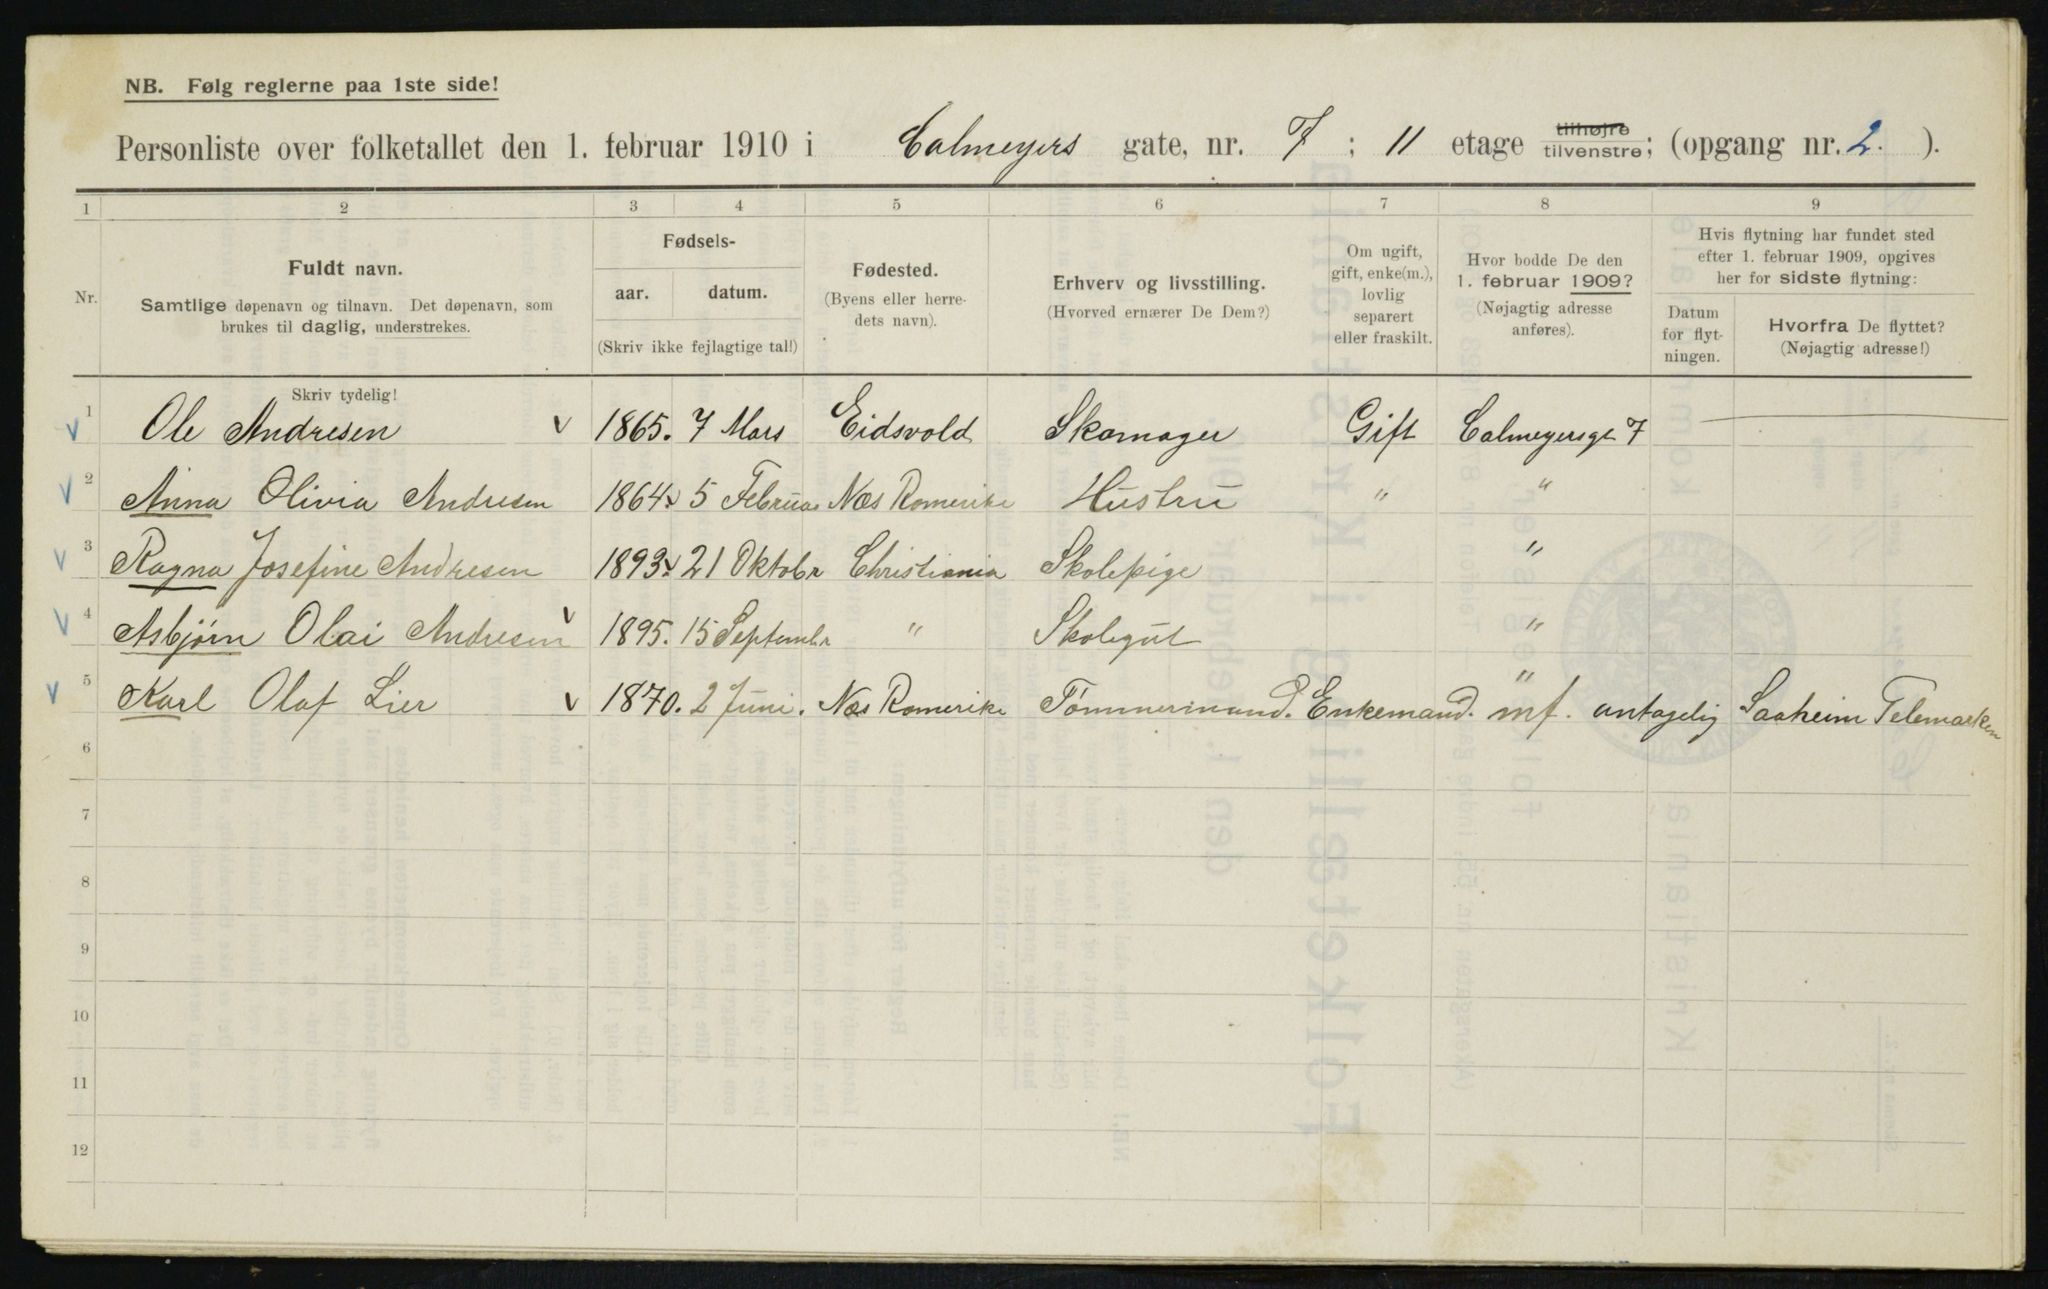 NB. Følg reglerne paa 1ste side!
Personliste over folketallet den 1. februar 1910 i Calmeyers gate, nr. 7; 11 etage tilhøjre tilvenstre; (opgang nr. 2.).
1 2 3 4 5 6 7 8 9
Nr.
Fuldt navn.
Samtlige døpenavn og tilnavn. Det døpenavn, som
brukes til daglig, understrekes.
Fødsels-
aar. datum.
(Skriv ikke fejlagtige tal!)
Fødested.
(Byens eller herre-
dets navn).
Erhverv og livsstilling.
(Hvorved ernærer De Dem?)
Om ugift,
gift, enke(m.),
lovlig
separert
eller fraskilt.
Hvor bodde De den
1. februar 1909?
(Nøjagtig adresse
anføres).
Hvis flytning har fundet sted
efter 1. februar 1909, opgives
her for sidste flytning:
Datum
for flyt-
ningen.
Hvorfra De flyttet?
(Nøjagtig adresse!)
Skriv tydelig!
1 Ole Andresen 1865. 7 Mars Eidsvold Skomager Gift Calmeyersgt 7
2 Anna Olivia Andresen 1864 5 Februar Næs Romerike Hustru " "
3 Ragna Josefine Andresen 1893 21 Oktobr Christiania Skolepige "
4 Asbjørn Olai Andresen 1895. 15 Septembr " Skolegut "
5 Karl Olaf Lier 1870. 2 Juni. Næs Romerike Tømmermand. Enkemand. " mf. antagelig Saaheim Telemarken
6
7
8
9
10
11
12